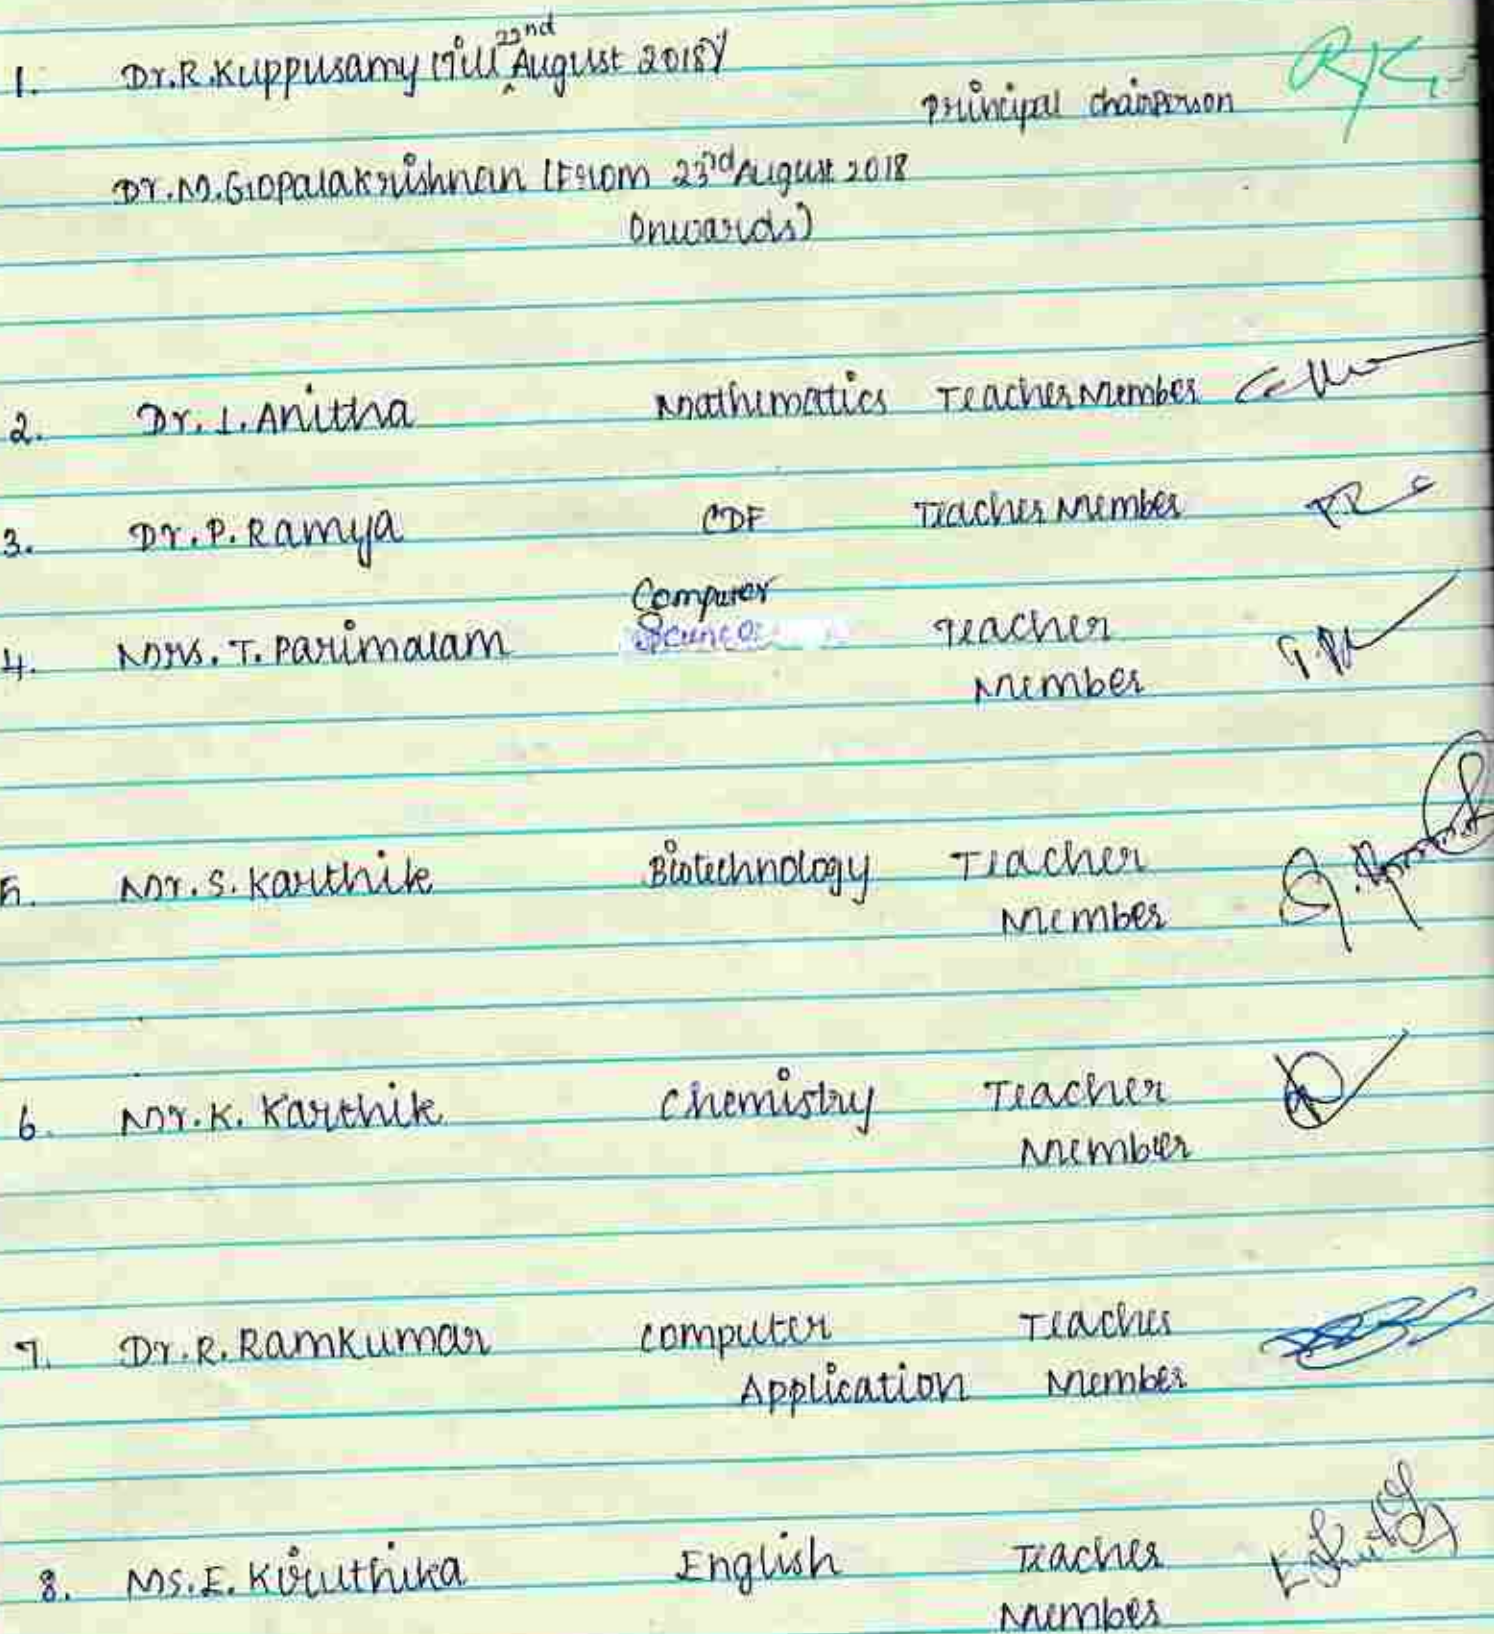 1. Dr.R.Kuppusamy (Till 22nd August 2018) Principal chairperson
Dr.M.Gopalakrishnan (From 23rd August 2018
Onwards)
2. Dr.L.Anitha Mathematics Teacher Member
3. Dr.P.Ramya CDF Teacher Member
4. Mrs.T.Parimalam Computer Science Teacher
Member
5. Mr.S.Karthik Biotechnology Teacher
Member
6. Mr.K.Karthik Chemistry Teacher
Member
7. Dr.R.Ramkumar Computer Teacher
Application Member
8. Ms.E.Kiruthika English Teacher
Member